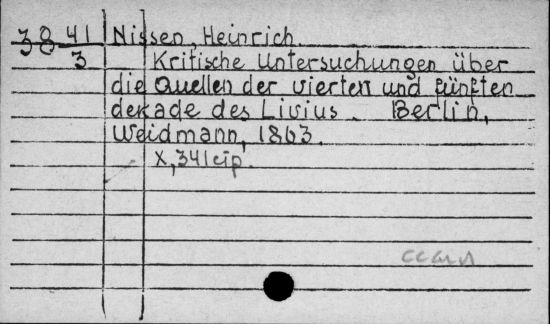 3841 Nissen, Heinrich.
3 Kritische Untersuchungen über
die Quellen der vierten und fünften
dekade des Livius. Berlin,
Weidmann, 1863.
X, 341 cip.